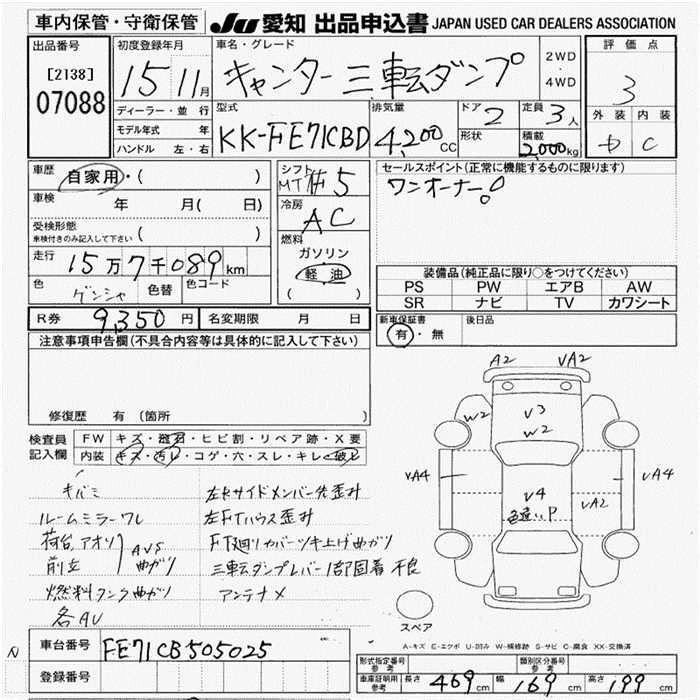 車内保管・守衛保管 JU 愛知 出品申込書 JAPAN USED CAR DEALERS ASSOCIATION
出品番号 初度登録年月 車名・グレード 2WD 評価点
[2138] 15 11月 キャンター 三転ダンプ 4WD 3
07088 ディーラー・並行 型式 排気量 ドア 定員 外装 内装
モデル年式 年 KK-FE71CBD 4,200CC 2 3人 C
ハンドル 左・右 形状 積載 2,000kg
車歴 自家用・( ) シフト MT F5 セールスポイント(正常に機能するものに限ります)
車検 年 月( 日) 冷房 AC ワンオーナー。
受検形態
車検付きのみ記入して下さい( ) 燃料
走行 15万7千089km ガソリン 装備品(純正品に限り○をつけてください)
色 ゲンシャ 色替 色コード 軽油 PS PW エアB AW
( ) SR ナビ TV カワシート
R券 9,350円 名変期限 月 日 新車保証書 有・無 後日品
注意事項申告欄(不具合内容等は具体的に記入して下さい)
修復歴 有 (箇所 )
検査員 FW キズ・飛石・ヒビ割・リペア跡・X要
記入欄 内装 キズ・汚レ・コゲ・穴・スレ・キレ・破レ
キバミ 左右サイドメンバー先歪ミ
ルームミラーワレ 左FTハウス歪ミ
荷台アオリ AVS FT廻りカバーツキ上げ曲ガリ
前立 曲ガリ 三転ダンプレバー1部固着不良
燃料タンク曲ガリ アンテナメ
各AU
A2 VA2
W2 V3
W2
VA4 VA4
V4 VA2
色違いP
スペア
A-キズ E-エクボ U-凹み W-補修跡 S-サビ C-腐食 XX-交換済
N 車台番号 FE71CB505025
登録番号
形式指定番号 参考 類別区分番号 参考
車庫証明用 参考 長さ 469cm 幅 169cm 高さ 199cm